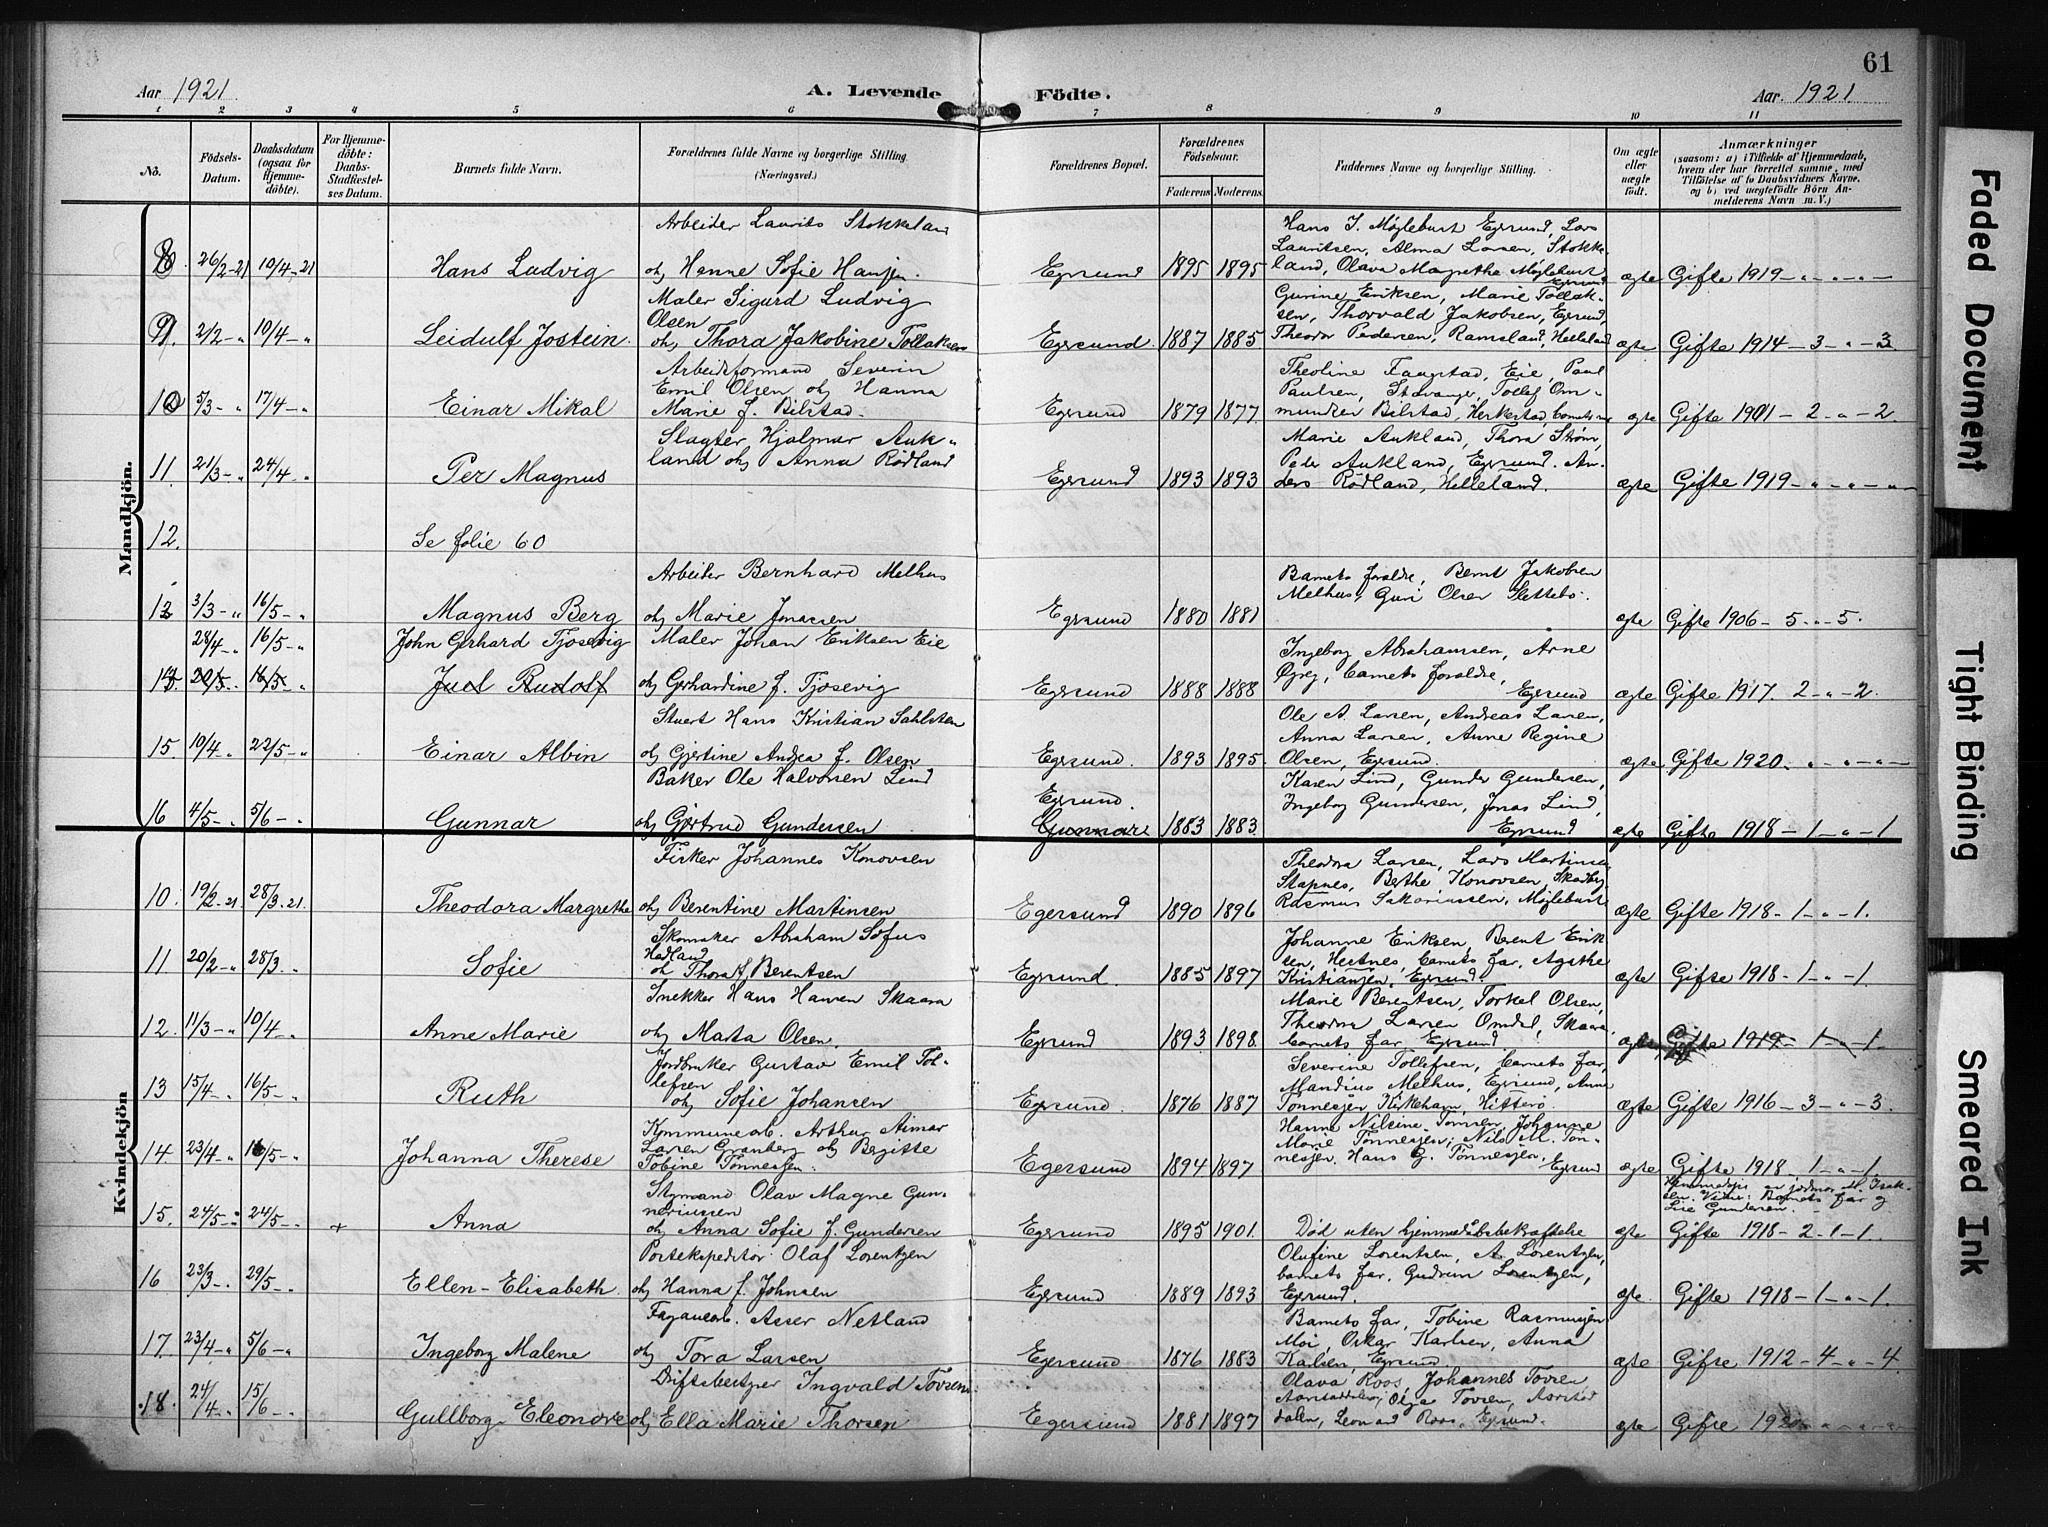 61
Aar 1921.
A. Levende Födte.
Aar. 1921.
1 2 3 4 5 6 7 8 9 10 11
No.
Födsels-Datum.
Daabsdatum (ogsaa for Hjemme-döbte).
For Hjemme-döbte: Daabs-Stadfæstel-ses Datum.
Barnets fulde Navn.
Forældrenes fulde Navne og borgerlige Stilling. (Næringsvei.)
Forældrenes Bopæl.
Forældrenes Födselsaar.
Faderens. Moderens.
Faddernes Navne og borgerlige Stilling.
Om ægte eller uægte födt.
Anmærkninger
(saasom: a) i Tilfælde af Hjemmedaab, hvem der har forrettet samme, med Tilföielse af to Daabsvidners Navne, og b) ved uægtefödte Börn Anmelderens Navn m. V.)
Mandkjön.
8. 26/2-21 10/4-21 Hans Ludvig
Arbeider Laurits Stokkeland
og Hanne Sofie Hansen.
Egersund 1895 1895
Hans I. Møglebust Egersund, Lars
Lauritsen, Alma Larsen, Stokke-
land, Olava Magrethe Møglebust
Egersund
ægte Gifte 1919 - „ - „ -
9. 2/2 - „ 10/4 - „ Leidulf Jostein.
Maler Sigurd Ludvig
Olsen
og Thora Jakobine Tollaksen
Egersund. 1887 1885
Gurine Eriksen, Marie Tollak-
sen, Thorvald Jakobsen, Egersund,
Theodor Pedersen, Ramsland, Helleland
ægte Gifte 1914 - 3 - „ - 3
10 5/3 - „ 17/4 - „ Einar Mikal
Arbeidsformand Severin
Emil Olsen og Hanna
Marie f. Bilstad.
Egersund 1879 1877.
Theoline Faugstad, Eie, Paul
Paulsen, Stavanger, Tollef Om-
mundsen Bilstad, Herkestad,
ægte Gifte 1901 - 2 - „ - 2.
11. 21/3 - „ 24/4 „ Per Magnus
Slagter Hjalmar Auk-
land og Anna Rødland
Egersund 1893 1893
Marie Aukland, Thora Strøm,
Peder Aukland, Egersund. An-
ders Rødland, Helleland.
ægte Gifte 1919 - „ - „ - „ -
12. Se folie 60
12 3/3 - „ 16/5 - „ Magnus Berg
Arbeider Bernhard Melhus
og Marie Jonassen
Egersund 1880 1881
Barnets foraldre, Bernt Jakobsen
Melhus, Guri Olsen Slettebø.
ægte Gifte 1906 - 5 - „ - 5.
28/4 - „ 16/5 - „ John Gerhard Tjosevig
20/5 - 16/5 - „ Juel Rudolf
Maler Johan Eriksen Eie
og Gerhardine f. Tjosevig
Egersund 1888 1888
Ingeborg Abrahamsen, Arne
barnets foraldre,
Egersund
ægte Gifte 1917. 2 - „ - 2.
15. 10/4 - „ 22/5 - „ Einar Albin
Stuert Hans Kristian Sahlsten
og Gjertine Andrea f. Olsen
Egersund. 1893 1895.
Ole A. Larsen, Andreas Larsen,
Anna Larsen, Anne Regine
Olsen, Egersund.
ægte Gifte 1920. „ - „ - „ -
16 4/5 - „ 5/6 - „ Gunnar
Baker Ole Halvorsen Lind
og Gjertrud Gundersen
Egersund.
Gunnar 1883 1883.
Karen Lind, Gunder Gundersen,
Ingeborg Gundersen, Jonas Lind,
Egersund
ægte Gifte 1918 - 1 - „ - 1
Kvindekjön
10. 19/2-21 28/3-21. Theodora Margrethe
Fisker Johannes Konovsen
og Berentine Martinsen
Egersund 1890 1896
Theodora Larsen, Lars Martinsen
Stapnes, Berthe Konovsen, Skadberg,
Rasmus Sakariassen, Møglebust
ægte Gifte 1918 - 1 - „ - 1.
11 20/2 - „ 28/3 - „ Sofie
Skomaker Abraham Sofus
Hadland
og Thora f. Berentsen
Egersund. 1885 1897
Johanne Eriksen, Berent Erik-
sen, Hestnes, barnets far, Agathe
Kristiansen, Egersund.
ægte Gifte 1918 - 1 - „ - 1.
12. 11/3 - „ 10/4 - „ Anne Marie
Snekker Hans Hansen Skaara
og Marta Olsen.
Egersund 1893 1898.
Marie Berentsen, Torkel Olsen,
Theodora Larsen Omdal, Skaara.
barnets far, Egersund
ægte Gifte 1919 - 1 - „ - 1.
13 15/4 - „ 16/5 - „ Ruth
Jordbruker Gustav Emil Tol-
lefsen
og Sofie Johansen
Egersund. 1876 1887
Severine Tollefsen, barnets far,
Mandius Melhus, Egersund, Anne
Tønnesen, Kirkehavn, Hitterø.
ægte Gifte 1916 - 3 - „ - 3.
14 23/4 - „ 16/5 - „ Johanna Therese
Kommunearb. Arthur Aimar
Larsen Granberg og Bergitte
Tobine Tønnessen.
Egersund 1894 1897
Hanne Nilsine Tomsen, Johanne
Marie Tønnesen, Nils M. Tøn-
nesen. Hans G. Tønnesen, Egersund
ægte Gifte 1918 - 1 - „ - 1.
15. 24/5 - „ 24/5 - „ + Anna
Styrmand Olav Magne Gun-
neriussen
og Anna Sofie f. Gundersen
Egersund 1895 1901.
Død uten hjemmedåbsbekræftelse
Hjemmedøpt av jordmor M. Isak-
sen. Vidne: Barnets far og
Lise Gundersen.
ægte Gifte 1918 - 2 - 1 - 1.
16 23/3 - „ 29/5 - „ Ellen-Elisabeth
Postekspeditør Olaf Lorentzen
og Hanna f. Johnsen
Egersund 1889 1893
Olufine Lorentsen, A. Lorentzen,
barnets far, Gudrun Lorentzen,
Egersund.
ægte. Gifte 1918 - 1 - „ - 1.
17. 23/4 - „ 5/6 - „ Ingeborg Malene
Fayancearb. Asser Netland
og Tora Larsen
Egersund 1876 1883
Barnets far, Tobine Rasmussen
Moi, Oskar Karlsen, Anna
Karlsen, Egersund
ægte Gifte 1912 - 4 - „ - 4
18. 24/4 - „ 15/6 - „ Gullborg Eleonore
Driftsbestyrer Ingvald Tovsen
og Ella Marie Thorsen
Egersund 1881 1897
Olava Roos, Johannes Tovsen
Aarstaddalen, Olga Tovsen, Aarstad
dalen, Leonard Roos, Egersund.
ægte Gifte 1920 - „ - „ -
Faded Document
Tight Binding
Smeared Ink